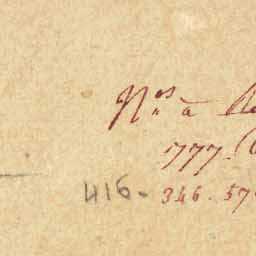 N.os à
1777.
416. 346. 57